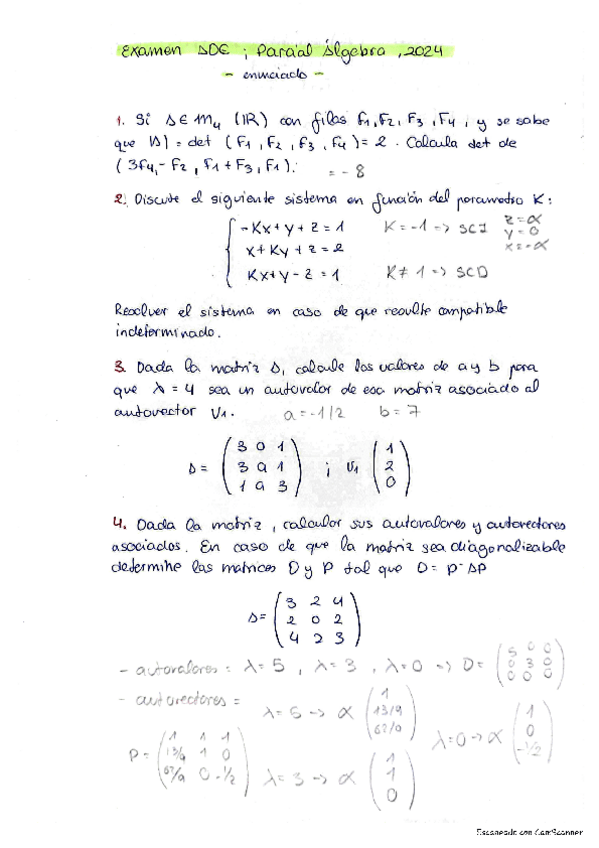 Examen ADE ; Parcial Álgebra , 2024
- enunciado -
1. Si A ∈ M4 (IR) con filas F1, F2, F3, F4, y se sabe
que |A| = det (F1, F2, F3, F4) = 2. Calcula det de
(3F4, -F2, F1+F3, F1). = -8
2. Discute el siguiente sistema en función del parametro K:
-Kx+y+z=1 K=-1 => SCI z=α
x+Ky+z=2 y=0
Kx+y-z=1 K≠1 => SCD x=-α
Resolver el sistema en caso de que resulte compatible
indeterminado.
3. Dada la matriz A, calcule los valores de a y b para
que λ = 4 sea un autovalor de esa matriz asociado al
autovector V1. a=-1/2 b=7
A= (3 0 1 ; V1 (1
3 a 1 2
1 a 3) 0)
4. Dada la matriz, calcular sus autovalores y autovectores
asociados. En caso de que la matriz sea diagonalizable
determine las matrices D y P tal que D= P- AP
A= (3 2 4
2 0 2
4 2 3)
- autovalores = λ=5, λ=3, λ=0 => D= (5 0 0
0 3 0
0 0 0)
- autovectores =
λ=5 -> α (1
13/9
62/9)
λ=0 -> α (1
0
-1/2)
P= (1 1 1
13/9 1 0
62/9 0 -1/2)
λ=3 -> α (1
1
0)
Escaneado con CamScanner